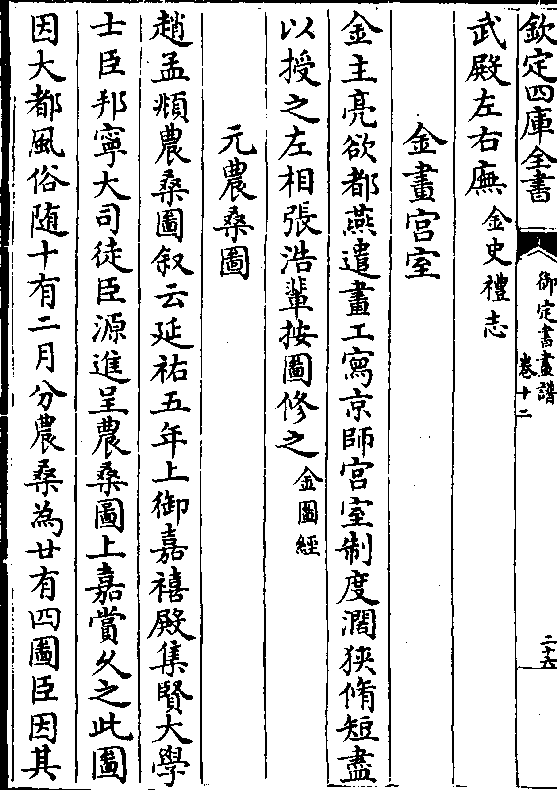 欽定四庫全書
御定書畫譜
卷十二
二十六
武殿左右廡金史禮志
金畫宫室
金主亮欲都燕遣畫工寫京師宫室制度濶狹脩短盡
以授之左相張浩輩按圖修之金圖經
元農桑圖
趙孟頫農桑圖叙云延祐五年上御嘉禧殿集賢大學
士臣邦寧大司徒臣源進呈農桑圖上嘉賞久之此圖
因大都風俗随十有二月分農桑為廿有四圖臣因其